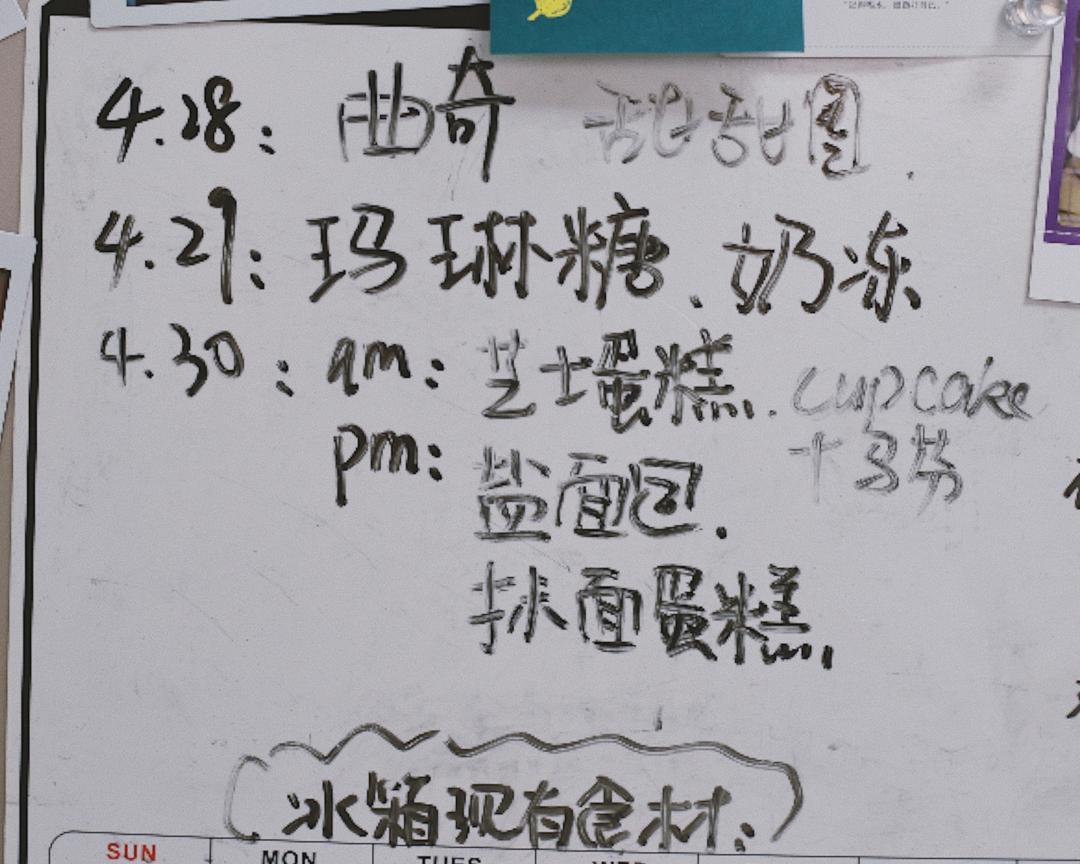 4.28: 曲奇 甜甜圈.
4.29: 玛琳糖、奶冻
4.30: am: 芝士蛋糕. cupcake
十多份
pm: 盐面包.
抹面蛋糕.
冰箱现有食材:
SUN MON TUES WED